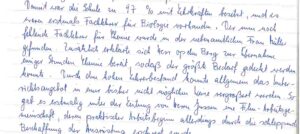 Damit war die Schule zu 47 % mit Lehrkräften besetzt, und es
war erstmals Fachlehrer für Biologie vorhanden. Der nun noch
fehlende Fachlehrer für Chemie wurde in der nebenamtlichen Frau Müller
gefunden. Zusätzlich erklärte sich Herr von den Berg zur Übernahme
einiger Stunden Chemie bereit, sodaß der größte Bedarf gedeckt werden
konnte. Durch den hohen Lehrerbestand konnte allgemein das Unter-
richtsangebot in nun bisher nicht möglichem vergrößert werden. So
gab es erstmalig unter der Leitung von Frau Jansen eine Film-Arbeitsge-
meinschaft, deren praktischer Arbeitsbeginn allerdings durch die schleppende
Beschaffung der